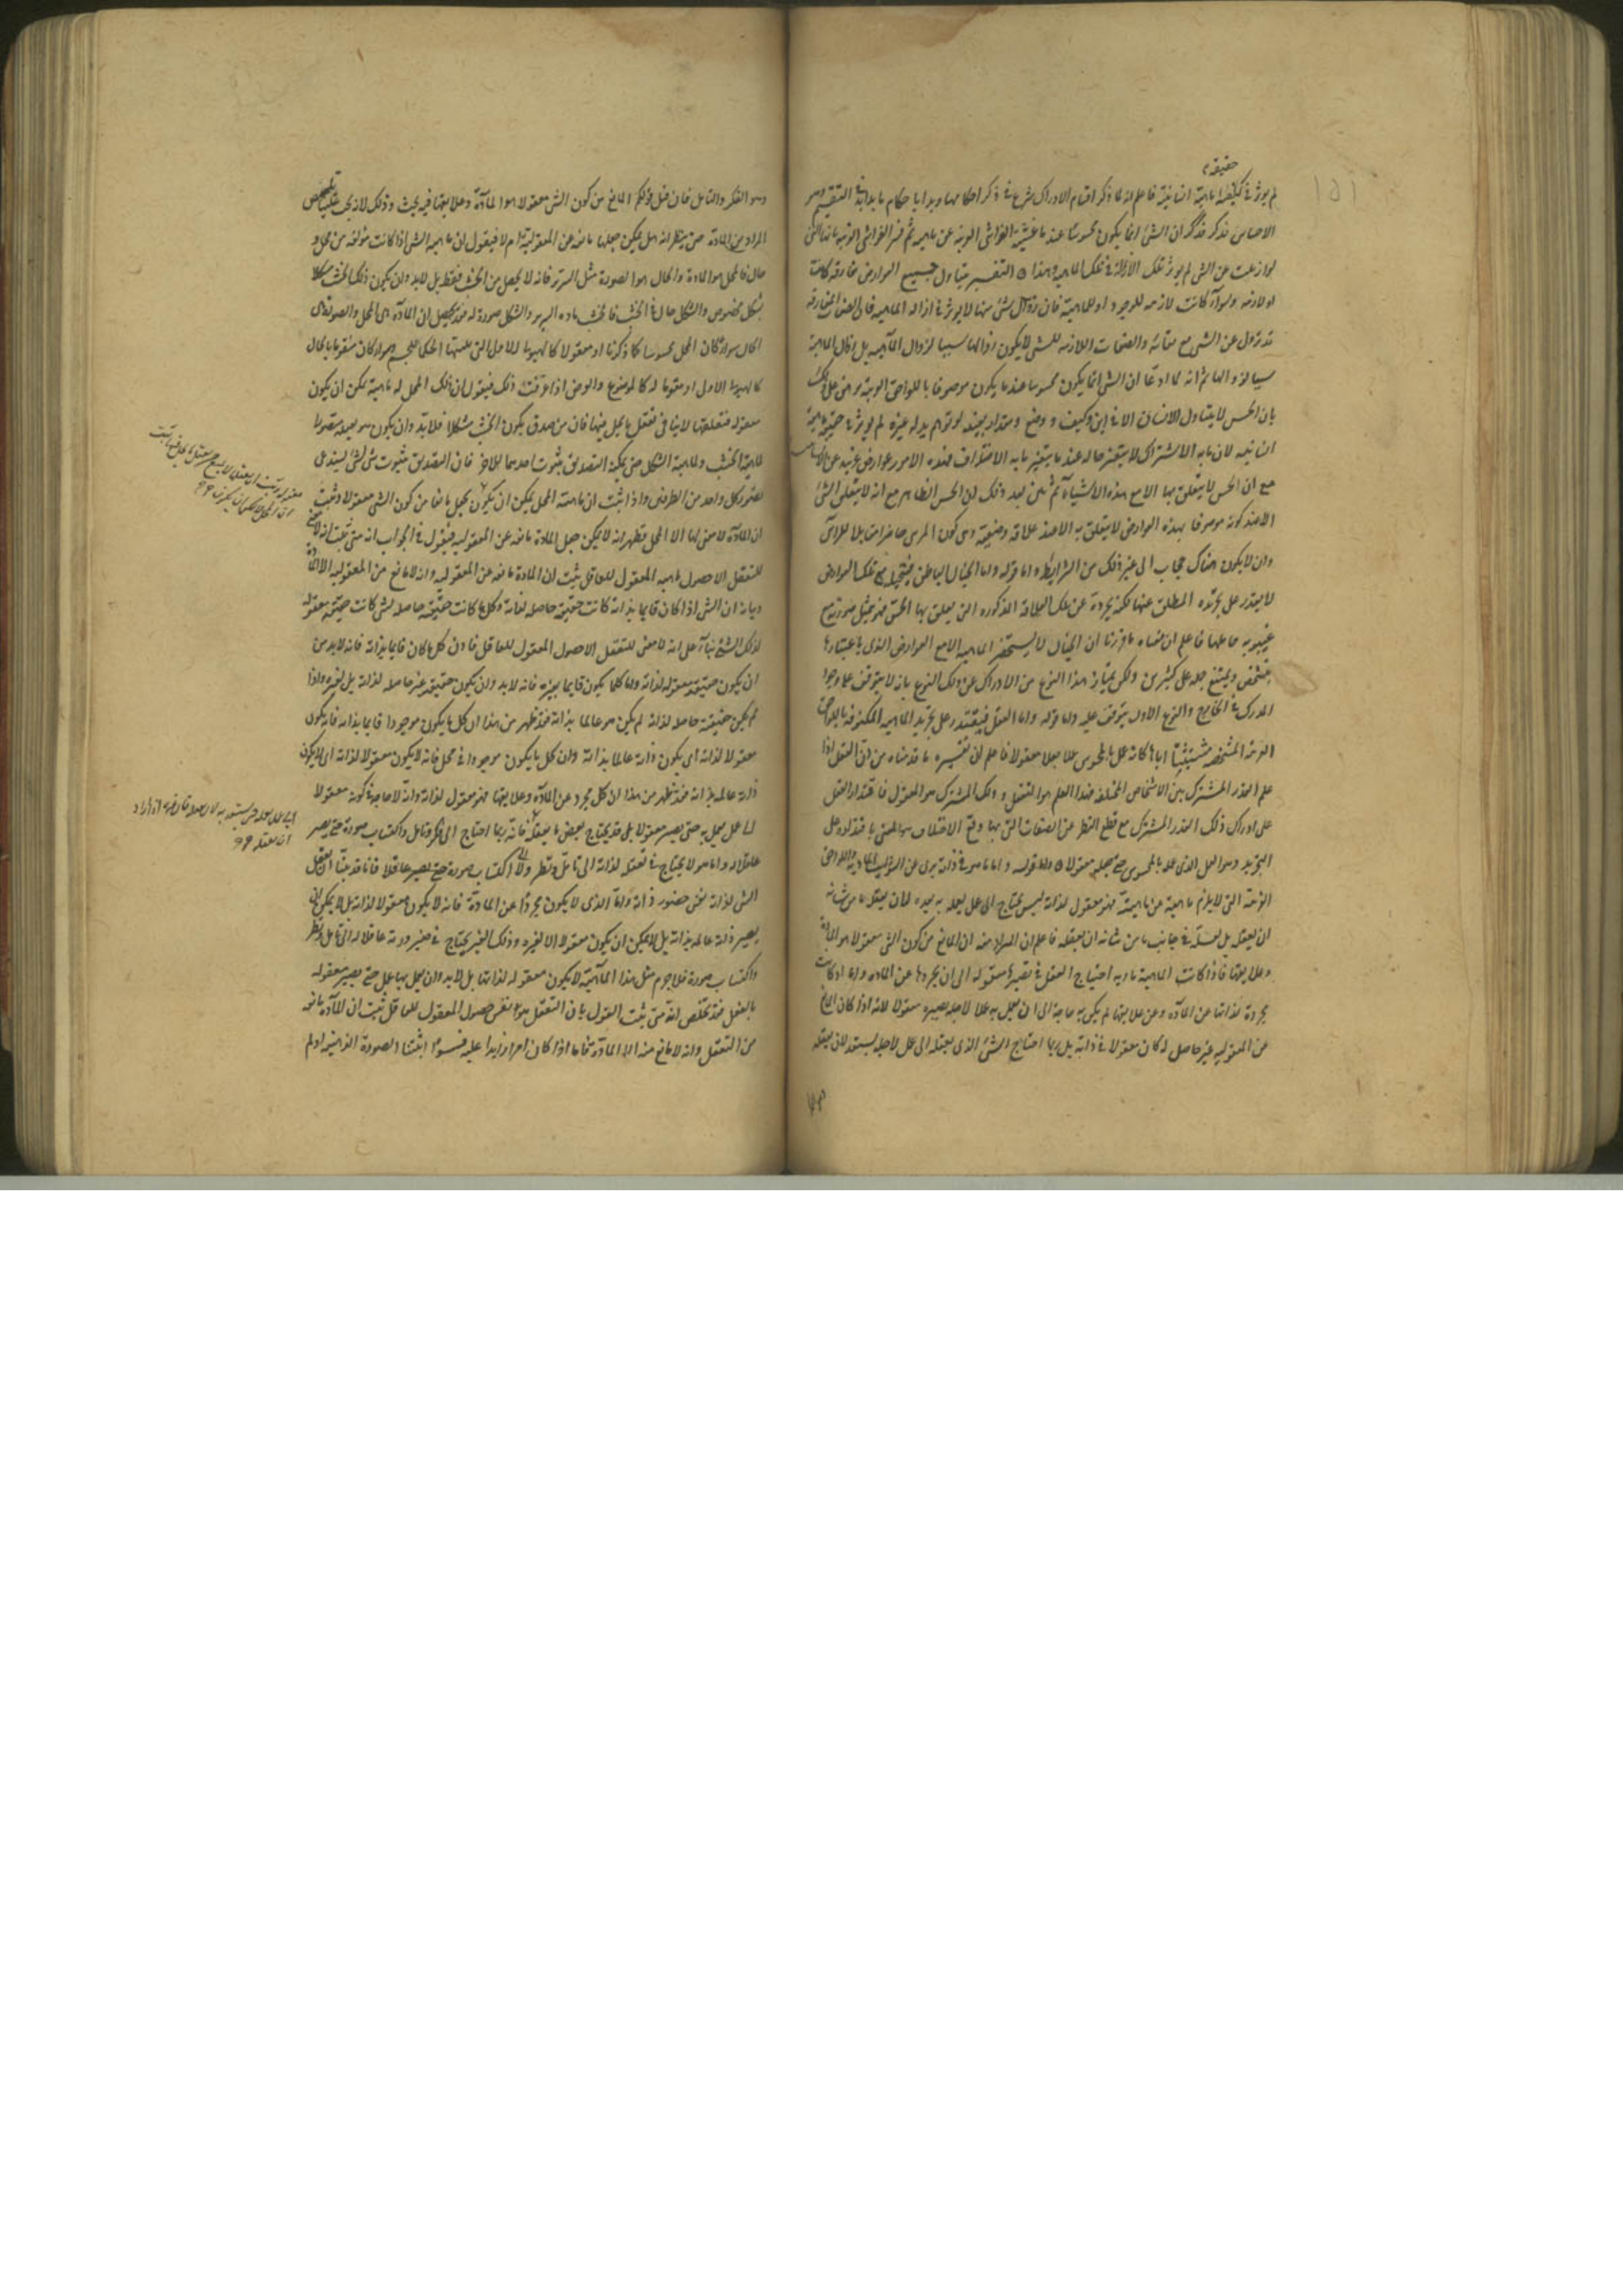 حقيقة
لم يؤثر في حقيقة ماهية انسانية فاعلم انه لما ذكر اقسام الادراك شرع في ذكر احكامها وبدأ باحكام ما بدأ به في التقسيم وهو
الاحساس فذكر ان الشئ انما يكون محسوسا عند ما غشيته الغواشى الغريبة عن ماهيته ثم فسر الغواشى الغريبة بانها التى
لو ازيلت عن الشئ لم يؤثر تلك الازالة في تلك الماهية وهذا التفسير يتناول جميع العوارض مفارقة كانت
او لازمة وسواء كانت لازمة للوجود او للماهية فان زوال شئ منها لا يؤثر في ازالة الماهية فان الصفات المفارقة
قد تزول عن الشئ مع بقائه والصفات اللازمة للشئ لا يكون زوالها سببا لزوال الماهية بل زوال الماهية
سببا لزوالها ثم انه لما ادعا ان الشئ انما يكون محسوسا عند ما يكون موصوفا باللواحق الغريبة برهن على ذلك
بان الحس لا يتناول الانسان الا في اين وكيف و وضع ومقدار بعينه لو توهم بدله غيره لم يؤثر في حقيقة ماهية
انسانيه لان ما به الاشتراك لا يتغير حاله عند ما يتغير ما به الاختلاف فهذه الامور عوارض غريبة عن الانسانية
مع ان الحس لا يتعلق بها الا مع هذه الاشياء ثم بين بعد ذلك ان الحس الظاهر مع انه لا يتعلق بالشئ
الا عند كونه موصوفا بهذه العوارض لا يتعلق به الا عند علاقة وضعية وهى كون المرئى حاضرا مقابلا للرائى
وان لا يكون هناك حجاب الى غير ذلك من الشرايط واما قوله واما الخيال الباطن فيتخيله مع تلك العوارض
لا يقتدر على تجريده المطلق عنها لكنه يجرده عن تلك العلاقة المذكورة التى يعلق بها الحس فهو يمثل صورته مع
غيبوبة حاملها فاعلم ان معناه ما قررنا ان الخيال لا يستحضر الماهية الا مع العوارض الذى باعتبارها
يتشخص ويمتنع حمله على كثيرين ولكن يمتاز هذا النوع من الادراك عن ذلك النوع بانه لا يتوقف على وجود
المدرك في الخارج والنوع الاول يتوقف عليه واما قوله واما العقل فيقتدر على تجريد الماهية المكنوفة باللواحق
الغريبة المشخصة مستثبتا اياها كانه عمل بالمحسوس عملا جعله معقولا فاعلم ان تفسيره ما قدمناه من ان العقل اذا
علم القدر المشترك بين الاشخاص المختلفة فهذا العلم هو التعقل و ذلك المشترك هو المعقول فاقتدار العقل
على ادراك ذلك القدر المشترك مع قطع النظر عن الصفات التى بها وقع الاختلاف هو المعنى باقتداره على
التجريد وهو العمل الذى عمله بالمحسوس حتى جعله معقولا واما قوله واما ما هو في ذاته برى عن الشوايب المادية واللواحق
الغريبة التى لا يلزم ماهيته عن ماهيته فهو معقول لذاته ليس يحتاج الى عمل يعمل به يعده لان يعقله ما من شانه
ان يعقله بل لعله في جانب ما من شانه ان يعقله فاعلم ان المراد منه ان المانع من كون الشئ معقولا هو المادة
وعلايقها فاذا كانت الماهية مادية احتاج العقل في تصييرها معقولة الى ان يجردها عن المادة واما اذا كانت
مجردة لذاتها عن المادة وعن علايقها لم يكن به حاجة الى ان يعمل به عملا لاجله يصير معقولا لانه اذا كان المانع
من المعقولية غير حاصل له كان معقولا في ذاته بل ربما احتاج الشئ الذى يعقله الى عمل لاجله يستعد لان يعقله
وهو الفكر والتامل فان قيل قولكم المانع من كون الشئ معقولا هو المادة وعلايقها فيه بحث وذلك لانه يجب علينا تلخيص
المراد من المادة حتى ينظر انه هل يمكن جعلها مانعة عن المعقولية ام لا فنقول ان ماهية الشئ اذا كانت مؤلفة من محل و
حال فالمحل هو المادة والحال هو الصورة مثل السرير فانه لا يحصل من الخشب فقط بل لا بد وان يكون ذلك الخشب مشكلا
بشكل مخصوص والشكل حال في الخشب فالخشب مادة السرير والشكل صورة له فقد تحصل ان المادة هى المحل والصورة هى
الحال سواء كان المحل محسوسا كما ذكرنا او معقولا كالهيولى الاولى التى يثبتها الحكما للجسم وسواء كان متقوما بالحال
كالهيولى الاولى او مقوما له كالموضوع والعرض اذا عرفت ذلك فنقول ان ذلك المحل له ماهية يمكن ان يكون
معقوله فتعلقها لا ينافى تعقل ما يحل فيها فان من صدق بكون الخشب مشكلا فلا بد وان يكون هو بعينه متصورا
لماهية الخشب ولماهية الشكل حتى يمكنه التصديق بثبوت احديهما للاخر فان التصديق بثبوت شئ لشئ يستدعى
تصور كل واحد من الطرفين واذا ثبت ان ماهية المحل يمكن ان يكون يحل مانعا من كون الشئ معقولا وثبت
ان المادة لا معنى لها الا المحل فظهر انه لا يمكن جعل المادة مانعة عن المعقولية فنقول في الجواب انه متى ثبت انه لا معنى
للتعقل الا حصول ماهية المعقول للعاقل ثبت ان المادة مانعة عن المعقولية وانه لا مانع من المعقولية الا المادة
وبيانه ان الشئ اذا كان قايما بذاته كانت حقيقته حاصلة لذاته وكل ما كانت حقيقته حاصله لشئ كانت حقيقته معقولة
لذلك الشئ بنآ على انه لا معنى للتعقل الا حصول المعقول للعاقل فاذن كل ما كان قايما بذاته فانه لا بد من
ان يكون حقيقته معقولة لذاته واما كلما يكون قايما بغيره فانه لا بد وان يكون حقيقته غير حاصله لذاته بل لغيره واذا
لم يكن حقيقته حاصلة لذاته لم يكن هو عالما بذاته فقد ظهر من هذا ان كل ما يكون موجودا قايما بذاته فانه يكون
معقولا لذاته اى يكون ذاته عالما بذاته وان كل ما يكون موجودا في محل فانه لا يكون معقولا لذاته اى لا يكون
ذاته عالمه بذاته فقد ظهر من هذا ان كل مجرد عن المادة وعلايقها فهو معقول لذاته وانه لا حاجة في كونه معقولا
الى عمل يعمل به حتى يصير معقولا بل قد يحتاج بعض ما يعقله فانه ربما احتاج الى فكر وتامل واكتساب صورة حتى يصير
عاقلا له واما هو لا يحتاج في تعقله لذاته الى تامل ونظر ولا الى اكتساب صورة حتى يصير عاقلا فانا قد بينا ان تعقل
الشئ لذاته نفس حضور ذاته واما الذى لا يكون مجردا عن المادة فانه لا يكون معقولا لذاته بل لا يمكن ان
يصير ذاته عالمه بذاته بل لا يمكن ان يكون معقولا الا لغيره وذلك الغير يحتاج في صيرورته عاقلا له الى تامل ونظر
واكتساب صورة فلا جرم مثل هذا الماهية لا يكون معقوله لذاتها بل لا بد وان يعمل بها عمل حتى يصير معقوله
بالفعل فقد تلخص انه متى ثبت القول بان التعقل هو نفس حصول المعقول للعاقل ثبت ان المادة مانعة
من التعقل وانه لا مانع منه الا المادة فاما اذا كان امرا زايدا عليه فسواء اثبتنا الصورة الذهنية او لم